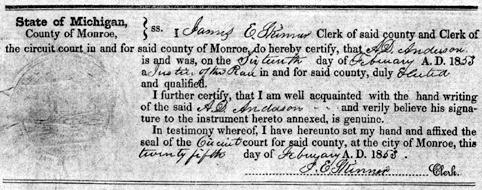 State of Michigan,
County of Monroe, } ss. I James E Skinner Clerk of said county and Clerk of
the circuit court in and for said county of Monroe, do hereby certify, that A.D. Anderson
is and was, on the Sixteenth day of February A. D. 1853
a Justice of the Peace in and for said county, duly Elected
and qualified.
I further certify, that I am well acquainted with the hand writing
of the said A. D. Anderson - - and verily believe his sig-
nature to the instrument hereto annexed, is genuine.
In testimony whereof, I have hereunto set my hand and affixed the
seal of the Circuit court for said county, at the city of Monroe, this
twenty fifth day of February A. D. 1853.
J. E. Skinner Clerk.